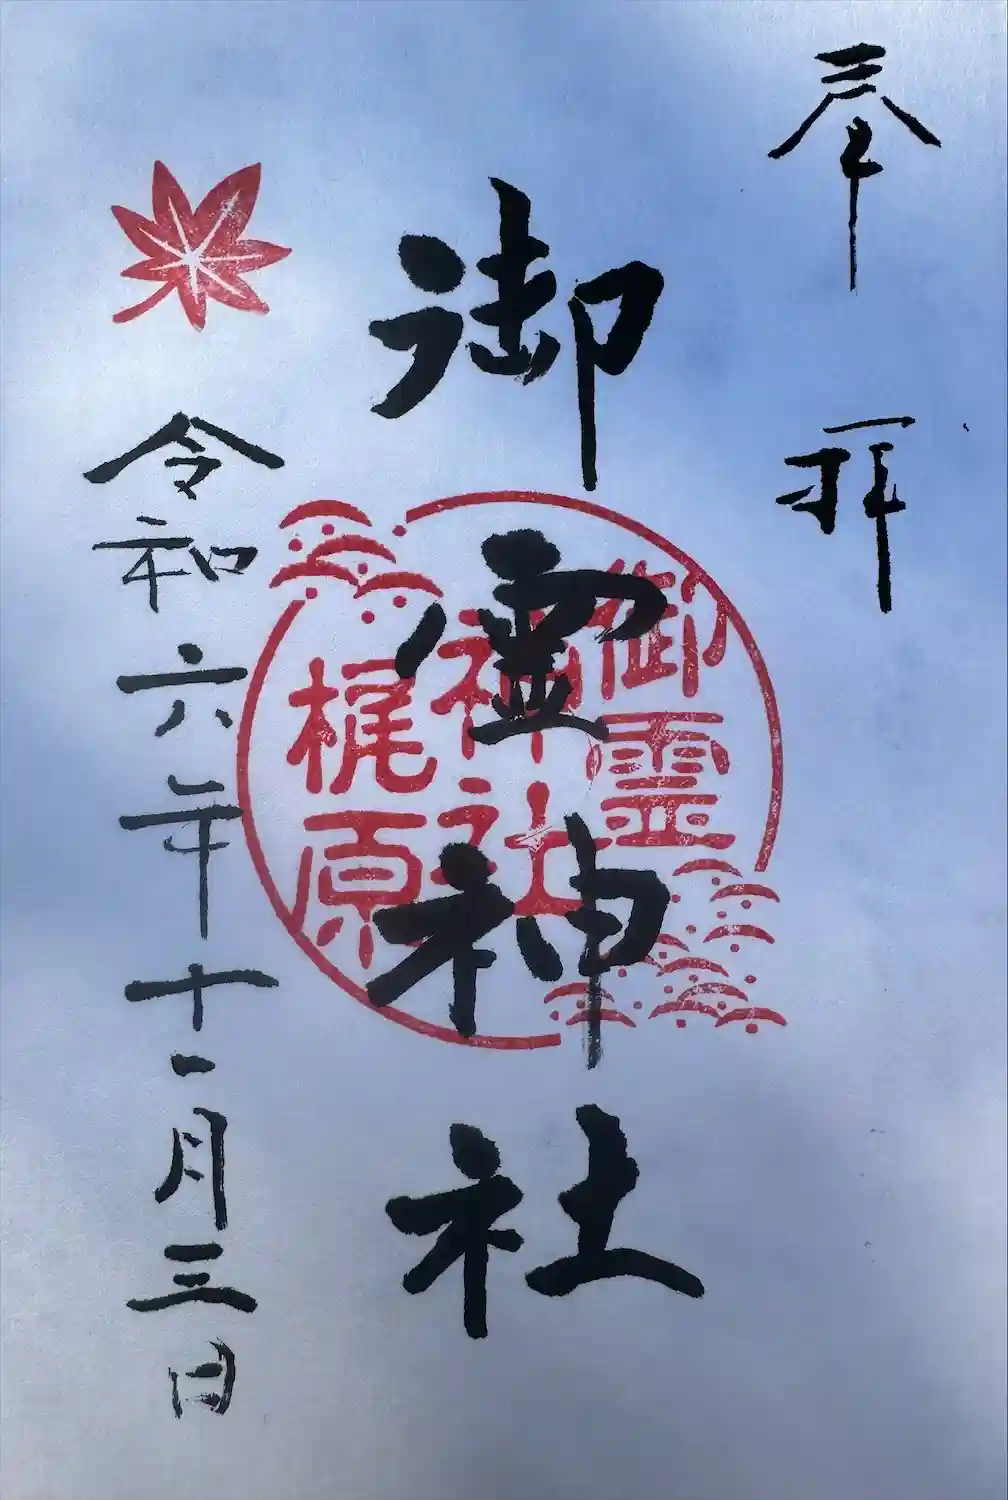 奉拝
御霊神社
御霊
神社
梶原
令和六年十一月三日